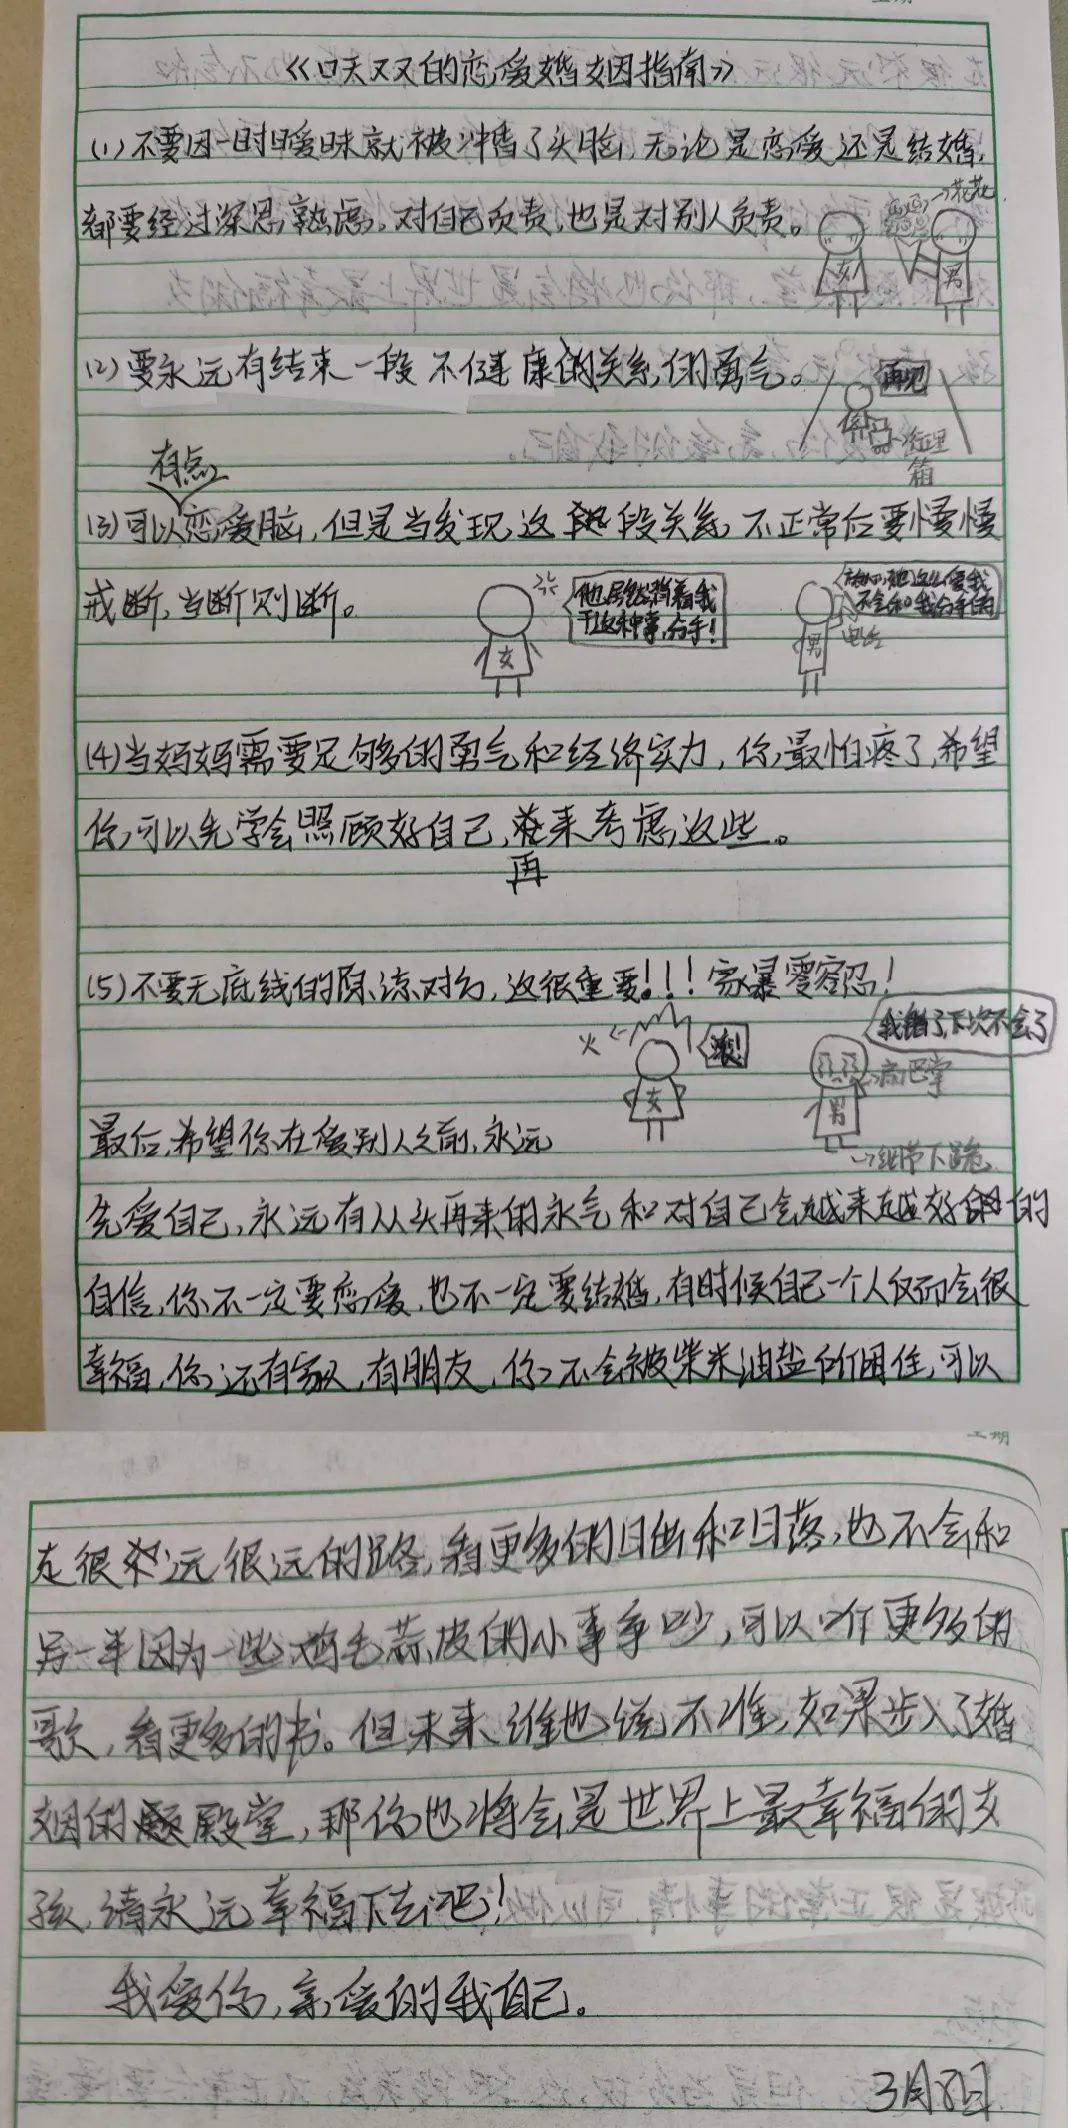 《口天双双的恋爱婚姻指南》
(1)不要因一时暧昧就被冲昏了头脑,无论是恋爱还是结婚,
都要经过深思熟虑,对自己负责,也是对别人负责。
→花花
女
男
(2)要永远有结束一段不健康的关系,的勇气。
再见
你
→行理
箱
有点
(3)可以恋爱脑,但是当发现,这段关系不正常后要慢慢
戒断,当断则断。
他居然背着我
干这种事,分手!
放心,她这么爱我
不会和我分手的
女
男
电话
(4)当妈妈需要足够的勇气和经济实力,你最怕疼了,希望
你可以先学会照顾好自己,来考虑这些。
再
(5)不要无底线的原谅对方,这很重要!!!家暴零容忍!
我错了,下次不会了
火
滚!
女
男
→滴巴掌
最后,希望你在爱别人之前,永远
→纽带下跪
先爱自己,永远有从头再来的永气和对自己会越来越好的
自信,你不一定要恋爱,也不一定要结婚,有时候自己一个人反而会很
幸福,你还有家人,有朋友,你不会被柴米油盐所困住,可以
走很远很远的路,看更多的日出和日落,也不会和
另一半因为一些鸡毛蒜皮的小事争吵,可以听更多的
歌,看更多的书。但未来谁也说不准,如果步入了婚
姻的殿堂,那你也将会是世界上最幸福的女
孩,请永远幸福下去吧!
我爱你,亲爱的我自己。
3月8日